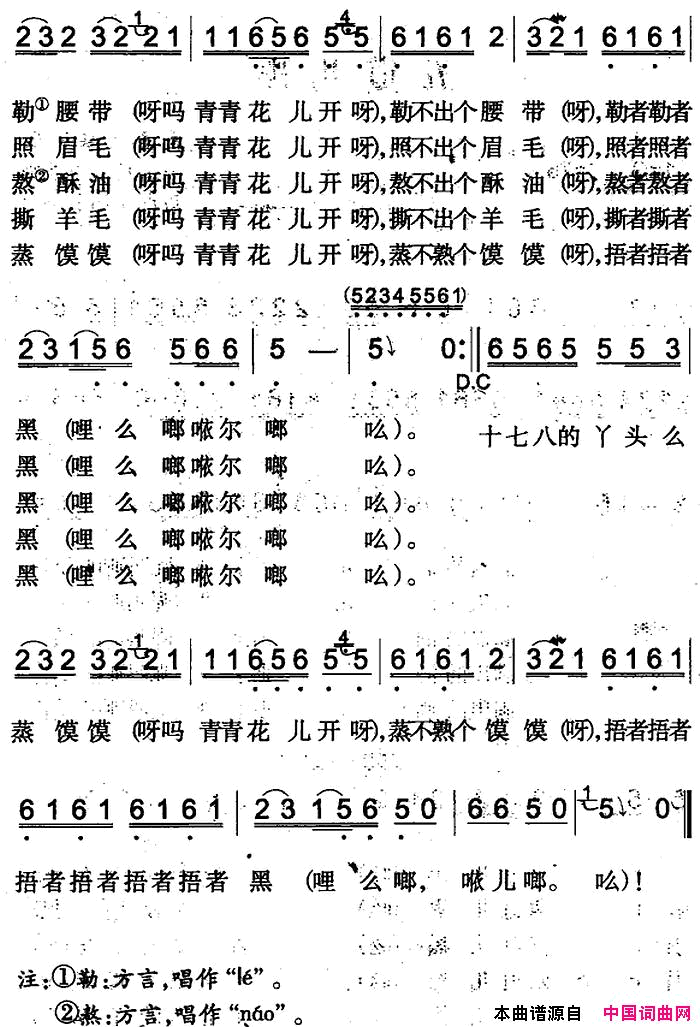 2 3 2 3 2 2 2 1 | 1 1 6 5 6 5 5 | 6 1 6 1 2 | 3 2 1 6 1 6 1 |
勒①腰带(呀吗青青花儿开呀),勒不出个腰带(呀),勒者勒者
照眉毛(呀吗青青花儿开呀),照不出个眉毛(呀),照者照者
熬②酥油(呀吗青青花儿开呀),熬不出个酥油(呀),熬者熬者
撕羊毛(呀吗青青花儿开呀),撕不出个羊毛(呀),撕者撕者
蒸馍馍(呀吗青青花儿开呀),蒸不熟个馍馍(呀),捂者捂者
(5 2 3 4 5 5 6 1)
2 3 1 5 6 5 6 6 | 5 — | 5 0 :‖ 6 5 6 5 5 5 3 |
D.C
黑(哩么啷哝尔啷吆)。 十七八的丫头么
黑(哩么啷哝尔啷吆)。
黑(哩么啷哝尔啷吆)。
黑(哩么啷哝尔啷吆)。
黑(哩么啷哝尔啷吆)。
2 3 2 3 2 2 2 1 | 1 1 6 5 6 5 5 | 6 1 6 1 2 | 3 2 1 6 1 6 1 |
蒸馍馍(呀吗青青花儿开呀),蒸不熟个馍馍(呀),捂者捂者
6 1 6 1 6 1 6 1 | 2 3 1 5 6 5 0 | 6 6 5 0 | 5 0 ‖
捂者捂者捂者捂者黑(哩么啷,哝儿啷。吆)!
注:①勒:方言,唱作“lé”。
②熬:方言,唱作“náo”。
本曲谱源自 中国词曲网